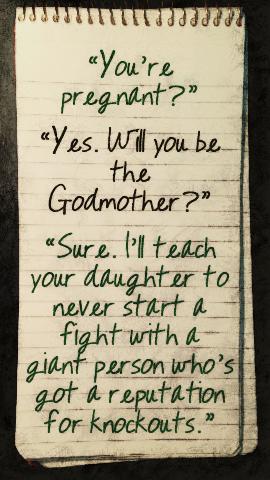 “You're
pregnant?”
“Yes. Will you be
the
Godmother?”
“Sure. I'll teach
your daughter to
never start a
fight with a
giant person who's
got a reputation
for knockouts.”